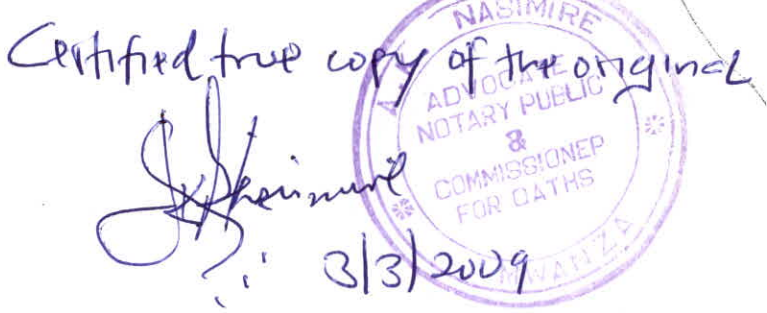 Certified true copy of the original
NASIMIRE
ADVOCATE
NOTARY PUBLIC
&
COMMISSIONER
FOR OATHS
MWANZA
3/3/2009